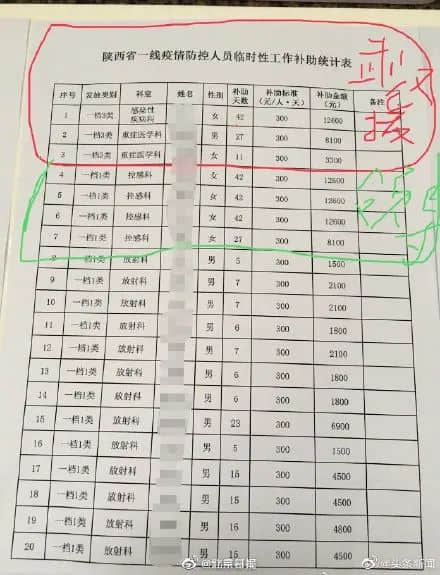 陕西省一线疫情防控人员临时性工作补助统计表
序号 发放类别 科室 姓名 性别 补助天数 补助标准(元/人·天) 补助金额(元) 备注
1 一档3类 感染性疾病科 女 42 300 12600
2 一档3类 重症医学科 男 27 300 8100
3 一档3类 重症医学科 女 11 300 3300
4 一档1类 控感科 女 42 300 12600
5 一档1类 控感科 女 42 300 12600
6 一档1类 控感科 女 42 300 12600
7 一档1类 控感科 女 27 300 8100
8 一档1类 放射科 男 5 300 1500
9 一档1类 放射科 男 7 300 2100
10 一档1类 放射科 男 7 300 2100
11 一档1类 放射科 男 6 300 1800
12 一档1类 放射科 男 7 300 2100
13 一档1类 放射科 男 6 300 1800
14 一档1类 放射科 男 6 300 1800
15 一档1类 放射科 男 23 300 6900
16 一档1类 放射科 男 5 300 1500
17 一档1类 放射科 男 15 300 4500
18 一档1类 放射科 男 15 300 4500
19 一档1类 放射科 男 16 300 4800
20 一档1类 放射科 男 15 300 4500
@头条新闻